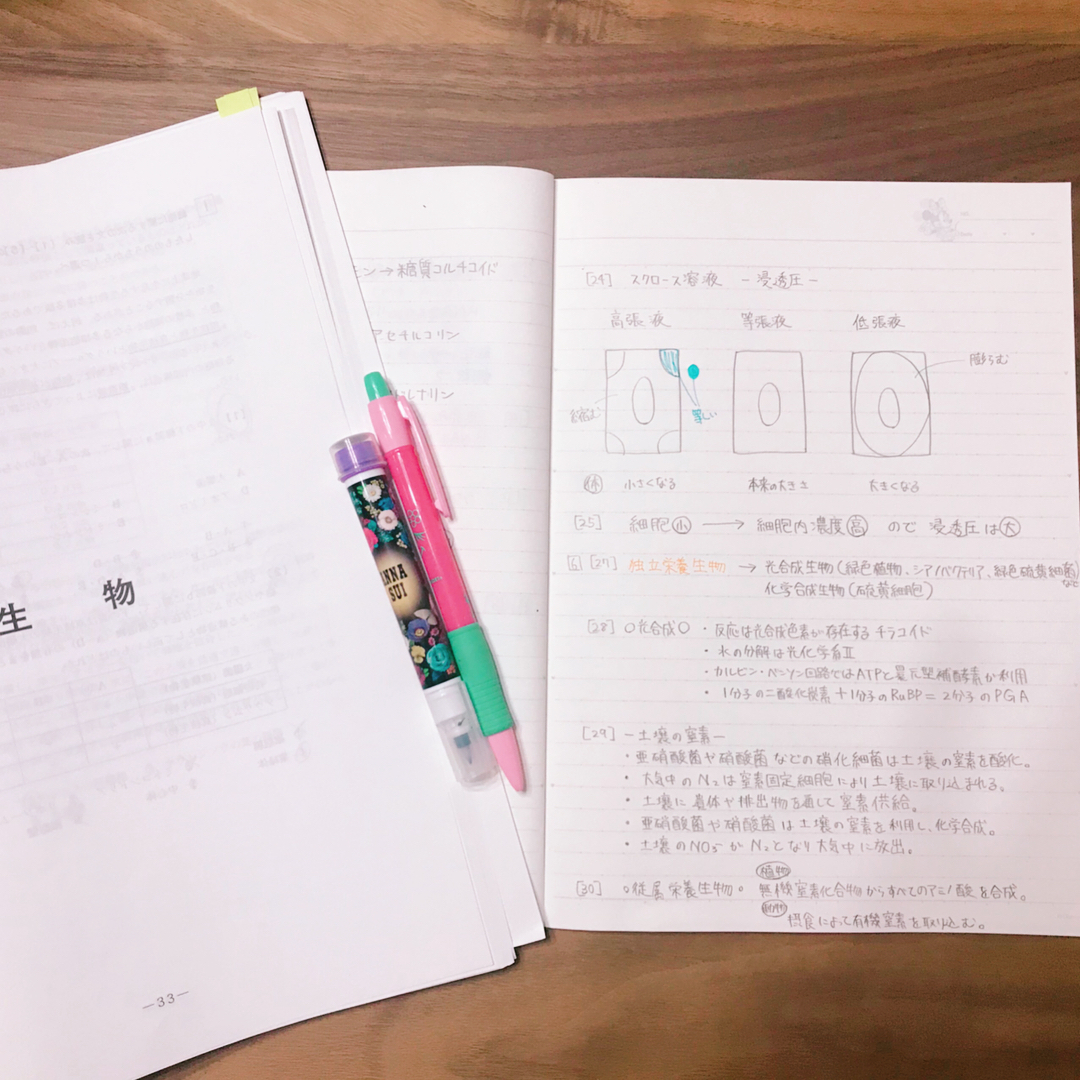 生物
—33—
ANNA
SUI
ン→糖質コルチコイド
アセチルコリン
ルナリン
[24] スクロース溶液 －浸透圧－
高張液 等張液 低張液
膨らむ
等しい
小さくなる 本来の大きさ 大きくなる
[25] 細胞小 → 細胞内濃度高 ので 浸透圧は大
6 [27] 独立栄養生物 → 光合成生物(緑色植物、シアノバクテリア、緑色硫黄細菌)など
化学合成生物(硫黄細胞)
[28] ○光合成○ ・反応は光合成色素が存在するチラコイド
・水の分解は光化学系Ⅱ
・カルビン・ベンソン回路ではATPと還元型補酵素が利用
・1分子の二酸化炭素+1分子のRuBP=2分子のPGA
[29] －土壌の窒素－
・亜硝酸菌や硝酸菌などの硝化細菌は土壌の窒素を酸化。
・大気中のN₂は窒素固定細胞により土壌に取り込まれる。
・土壌に遺体や排出物を通して窒素供給。
・亜硝酸菌や硝酸菌は土壌の窒素を利用し、化学合成。
・土壌のNO₃⁻がN₂となり大気中に放出。
植物
[30] 。従属栄養生物。 無機窒素化合物からすべてのアミノ酸を合成。
動物
摂食によって有機窒素を取り込む。